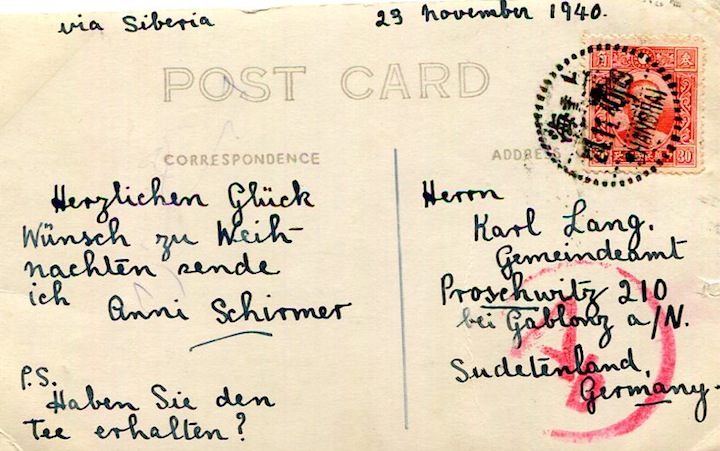 via Siberia
23 November 1940.
POST CARD
CORRESPONDENCE
ADDRESS
Herzlichen Glück
Wünsch zu Weih-
nachten sende
ich
Anni Schirmer
P.S.
Haben Sie den
Tee erhalten?
Herrn
Karl Lang.
Gemeindeamt
Proschwitz 210
bei Gablonz a/N.
Sudetenland,
Germany.
上海
SHANGHAI
30